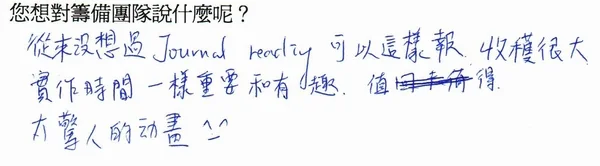 您想對籌備團隊說什麼呢？
從來沒想過 Journal reading 可以這樣報. 收穫很大
實作時間一樣重要和有趣. 值得.
太驚人的动畫 ^_^